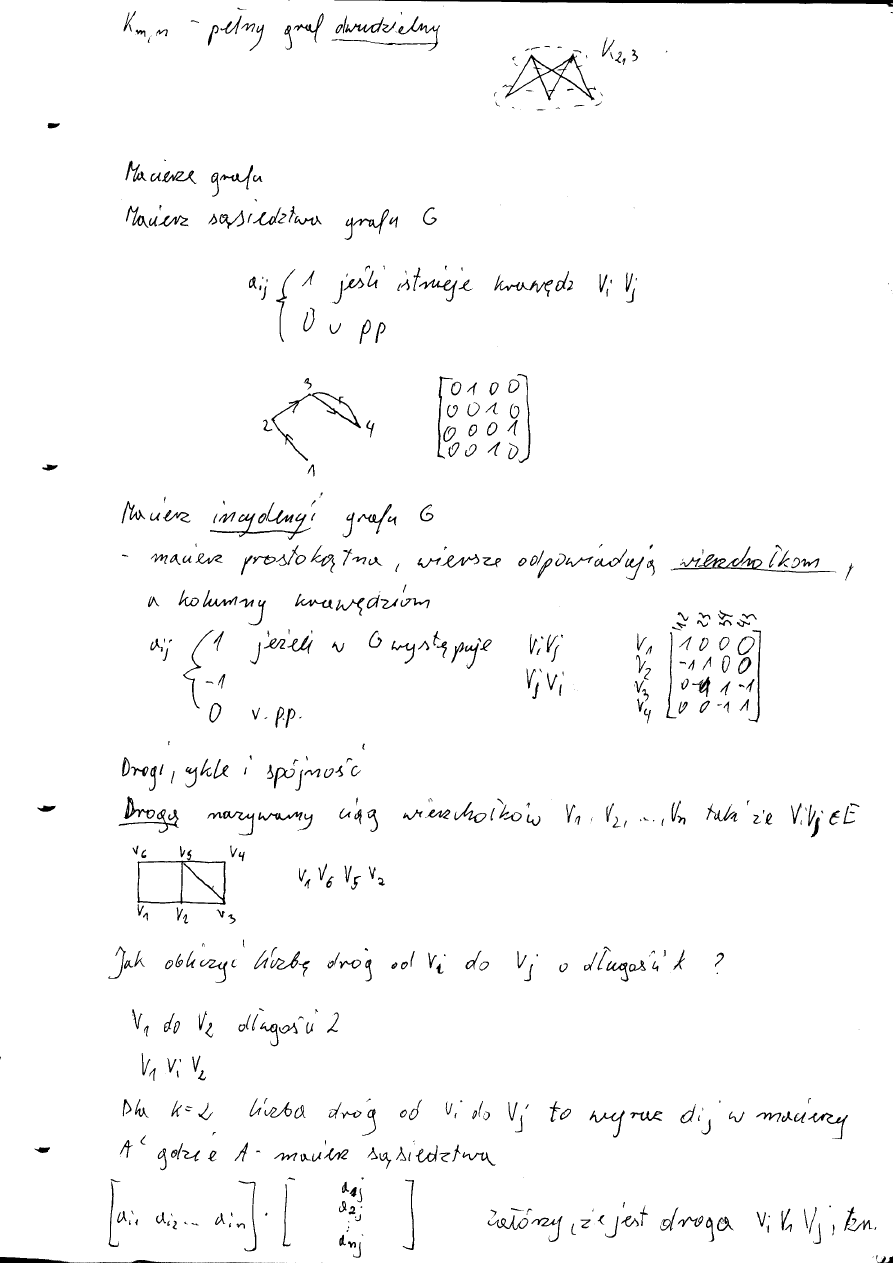 Km,n - pełny graf dwudzielny
K2,3
Macierze grafu
Macierz sąsiedztwa grafu G
aij { 1 jeśli istnieje krawędz Vi Vj
0 v pp
3
2
4
1
[0 1 0 0
0 0 1 0
0 0 0 1
0 0 1 0]
Macierz incydencji grafu G
- macierz prostokątna, wiersze odpowiadają wierzchołkom,
a kolumny krawędziom
12 23 34 43
aij { 1 jeżeli w G występuje ViVj
-1 VjVi
0 v. p.p.
V1 [1 0 0 0
V2 -1 1 0 0
V3 0 -1 1 -1
V4 0 0 -1 1]
Drogi, cykle i spójność
Drogą nazywamy ciąg wierzchołków V1, V2, ..., Vn takі że ViVj ∈ E
V6 V5 V4
V1 V2 V3
V1 V6 V5 V2
Jak obliczyć liczbę dróg od Vi do Vj o długości k ?
V1 do V2 długości 2
V1 Vi V2
Dla k=2 liczba dróg od Vi do Vj to wyraz aij w macierzy
A² gdzie A - macierz sąsiedztwa
[ai1 ai2 ... ain] · [a1j
a2j
⋮
anj]
Załóży, że jest droga Vi V1 Vj, tzn.